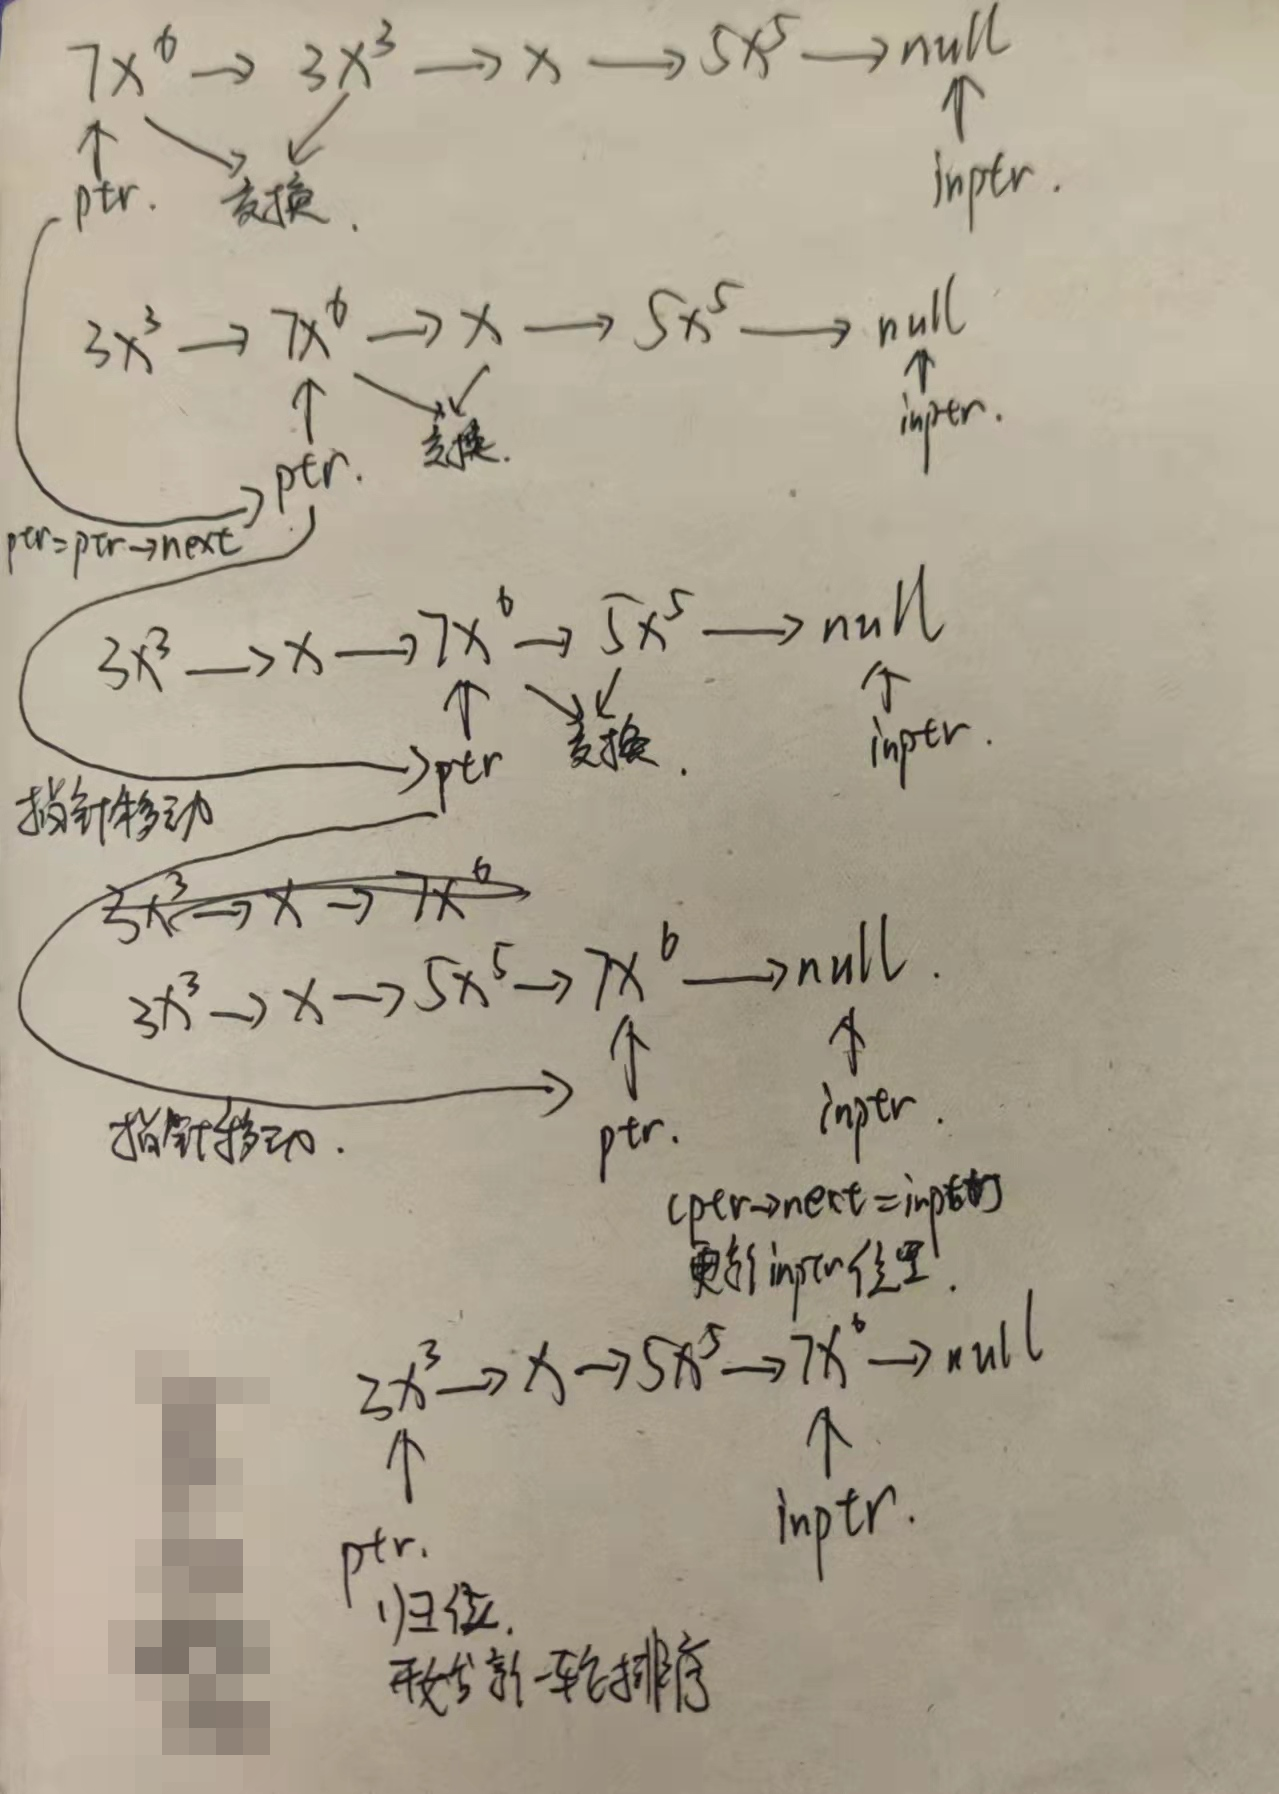 7x⁶ → 3x³ → x → 5x⁵ → null
ptr. 交换. inptr.
3x³ → 7x⁶ → x → 5x⁵ → null
ptr. 交换. inptr.
ptr=ptr→next
3x³ → x → 7x⁶ → 5x⁵ → null
ptr 交换. inptr.
指针移动
3x³ → x → 7x⁶
3x³ → x → 5x⁵ → 7x⁶ → null.
ptr. inptr.
指针移动.
(ptr→next=inptr时
更新inptr位置.
3x³ → x → 5x⁵ → 7x⁶ → null
ptr. inptr.
归位.
开始新一轮排序